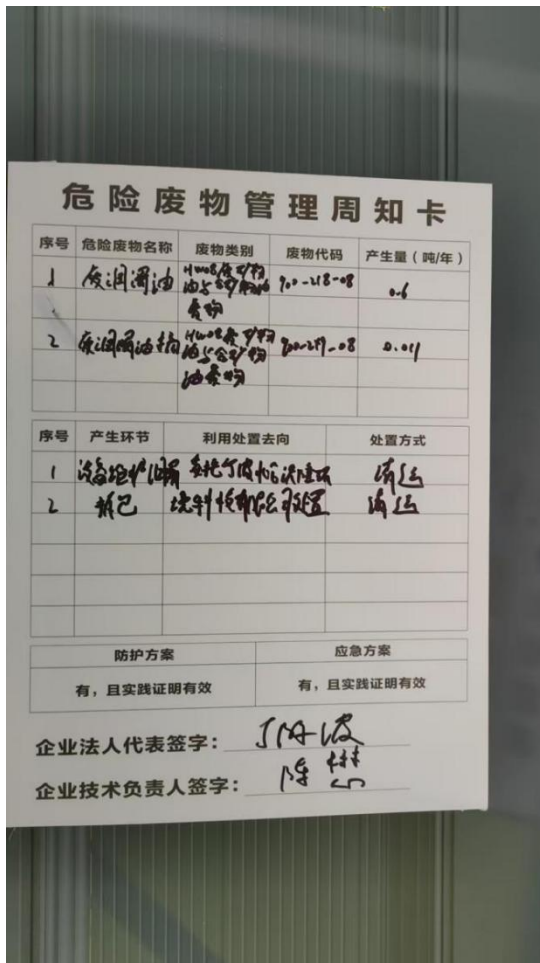 危险废物管理周知卡
序号 危险废物名称 废物类别 废物代码 产生量（吨/年）
1 废润滑油 HW08废矿物油与含矿物油废物 900-218-08 0.6
2 废润滑油桶 HW08废矿物油与含矿物油废物 900-249-08
序号 产生环节 利用处置去向 处置方式
1 设备维护润滑 委托宁波 清运
2 拆包 科技有限公司处置 清运
防护方案 应急方案
有，且实践证明有效 有，且实践证明有效
企业法人代表签字：
企业技术负责人签字：陈